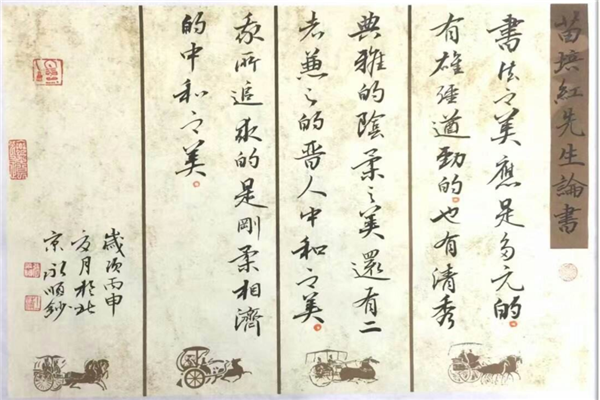 苗培紅先生論書
書法之美應是多元的。
有雄強遒勁的。也有清秀
典雅的陰柔之美還有二
者兼之的晋人中和之美。
我所追求的是剛柔相濟
的中和之美。
歲次丙申
夏月於北
京永順鈔